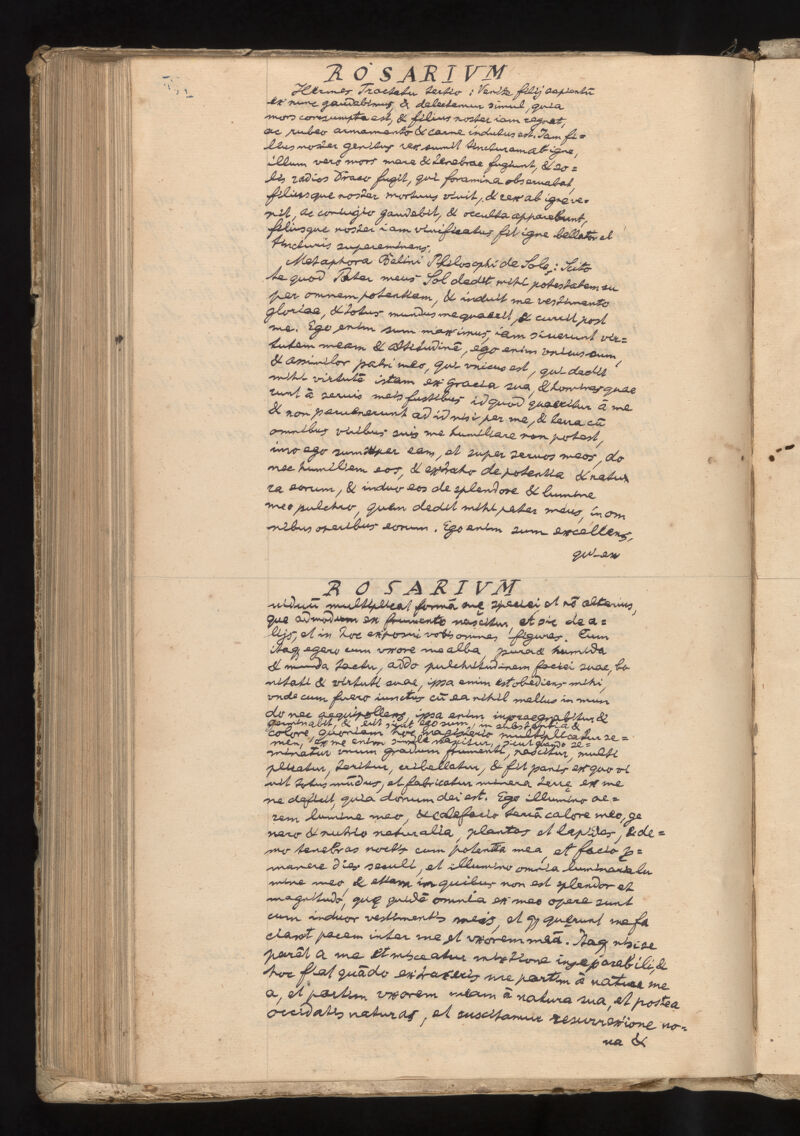 ROSARIVM
Hermes Tractatu tertio: Venite filij sapientũ
ex nunc gaudebimus, & delectemur simul, quia
mors consumpta est, & filius noster iam regnat,
ac rubeo armamento & carne indutus est. Iam fi=
lius noster genitus rex sumit tincturam at igne,
illum vero mors mare & tenebrae fugiunt, & so=
lis radios Draco fugit, qui foramina observabat,
filiusque noster mortuus vivit, & rex ab igne ve=
nit, ac coniugio gaudebit, & occulta apparebunt,
filiusque noster iam vivificatus fit igne bellator et
tincturis supereminens.
Metaphora Belini Philosophi de Sole: Scito
te quod Pater meus Sol dedit mihi potestatem su
per omnem potentiam, & induit me vestimento
gloriae, & totus mundus me quaerit, & currit post
me. Ego enim sum maximus, iam sciverunt vir=
tutem meam & altitudinẽ, ego enim vnicus sum,
& assimilor patri meo, qui vnicus est, qui dedit
mihi virtutẽ istam ex gracia sua, & homines quae
runt â servis meis fustibus id quod quaeritur â me
& non pervenerunt ad id nisi per me, & terra cũ
omnibus viribus suis me humiliare non potest,
imo ego sum super eam, et super servos meos, do
nec humiliem eos, & extraho de potentia & natu
ra eorum, & induo eos de splendore & lumine
meo pulchro, quem dedit mihi pater meus, in om
nibus operibus eorum. Ego enim sum excellens,
qui ex
ROSARIVM
viduũ multiplicat formã suę speciei et nõ alterius,
que admodum ex frumento nascitur, et sic de a=
lijs, et in hoc exposui vobis omnes figuras. Cum
itaq egero cum vxore mea alba, pura & humida
& munda tactu, addo pulchitudinem faciei suae, bo
nitati & virtuti suae, ipsa enim est obediens mihi,
vnde cum fuero iunctus cũ ea nihil melius in mun
do nec aequipollens, ipsa enim impraegnabitur &
germinabit, & erit sicut ego sum, in substantia &
colore, quoniam hoc magisterio multiplicatur se=
men, ex me enim simile nascitur, sicut quando se=
minatur vnum granum frumenti, nascitur, multi
plicatur, teritur, cribellatur, & fit panis ex quo vi
vit totus mũdus, et fabricatur minera terrę ex me
ne deficit, quia donum dei est. Ego illumino ae=
rem lumine meo, & calefacio terrã calore meo, ge
nero & nutrio naturalia, plantas et lapides, & de=
mo tenebras noctis cum potentia mea, et facio p=
manere dies seculi, et illumino omnia luminaria lu
mine meo, & etiam in quibus non est splendor et
magnitudo, quę quidẽ omnia ex meo opere sunt
cum induor vestimentis meis, et q quęrunt me fa
ciant pacem inter me et vxorem meã. Itaq nisi se
parẽt a me et misceatur mixtione inseparabili, &
hoc fiat quãdo extraxeris me partim â naturae me
a, et partim vxorem meam â natura sua, et postea
occidatis naturas, et suscitamur resurrexione no=
va &